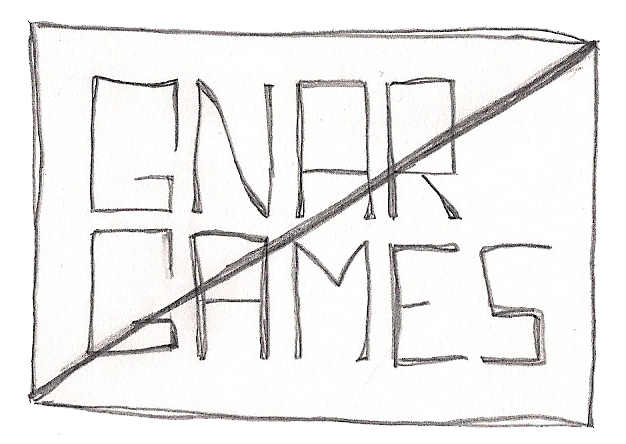 GNAR
GAMES